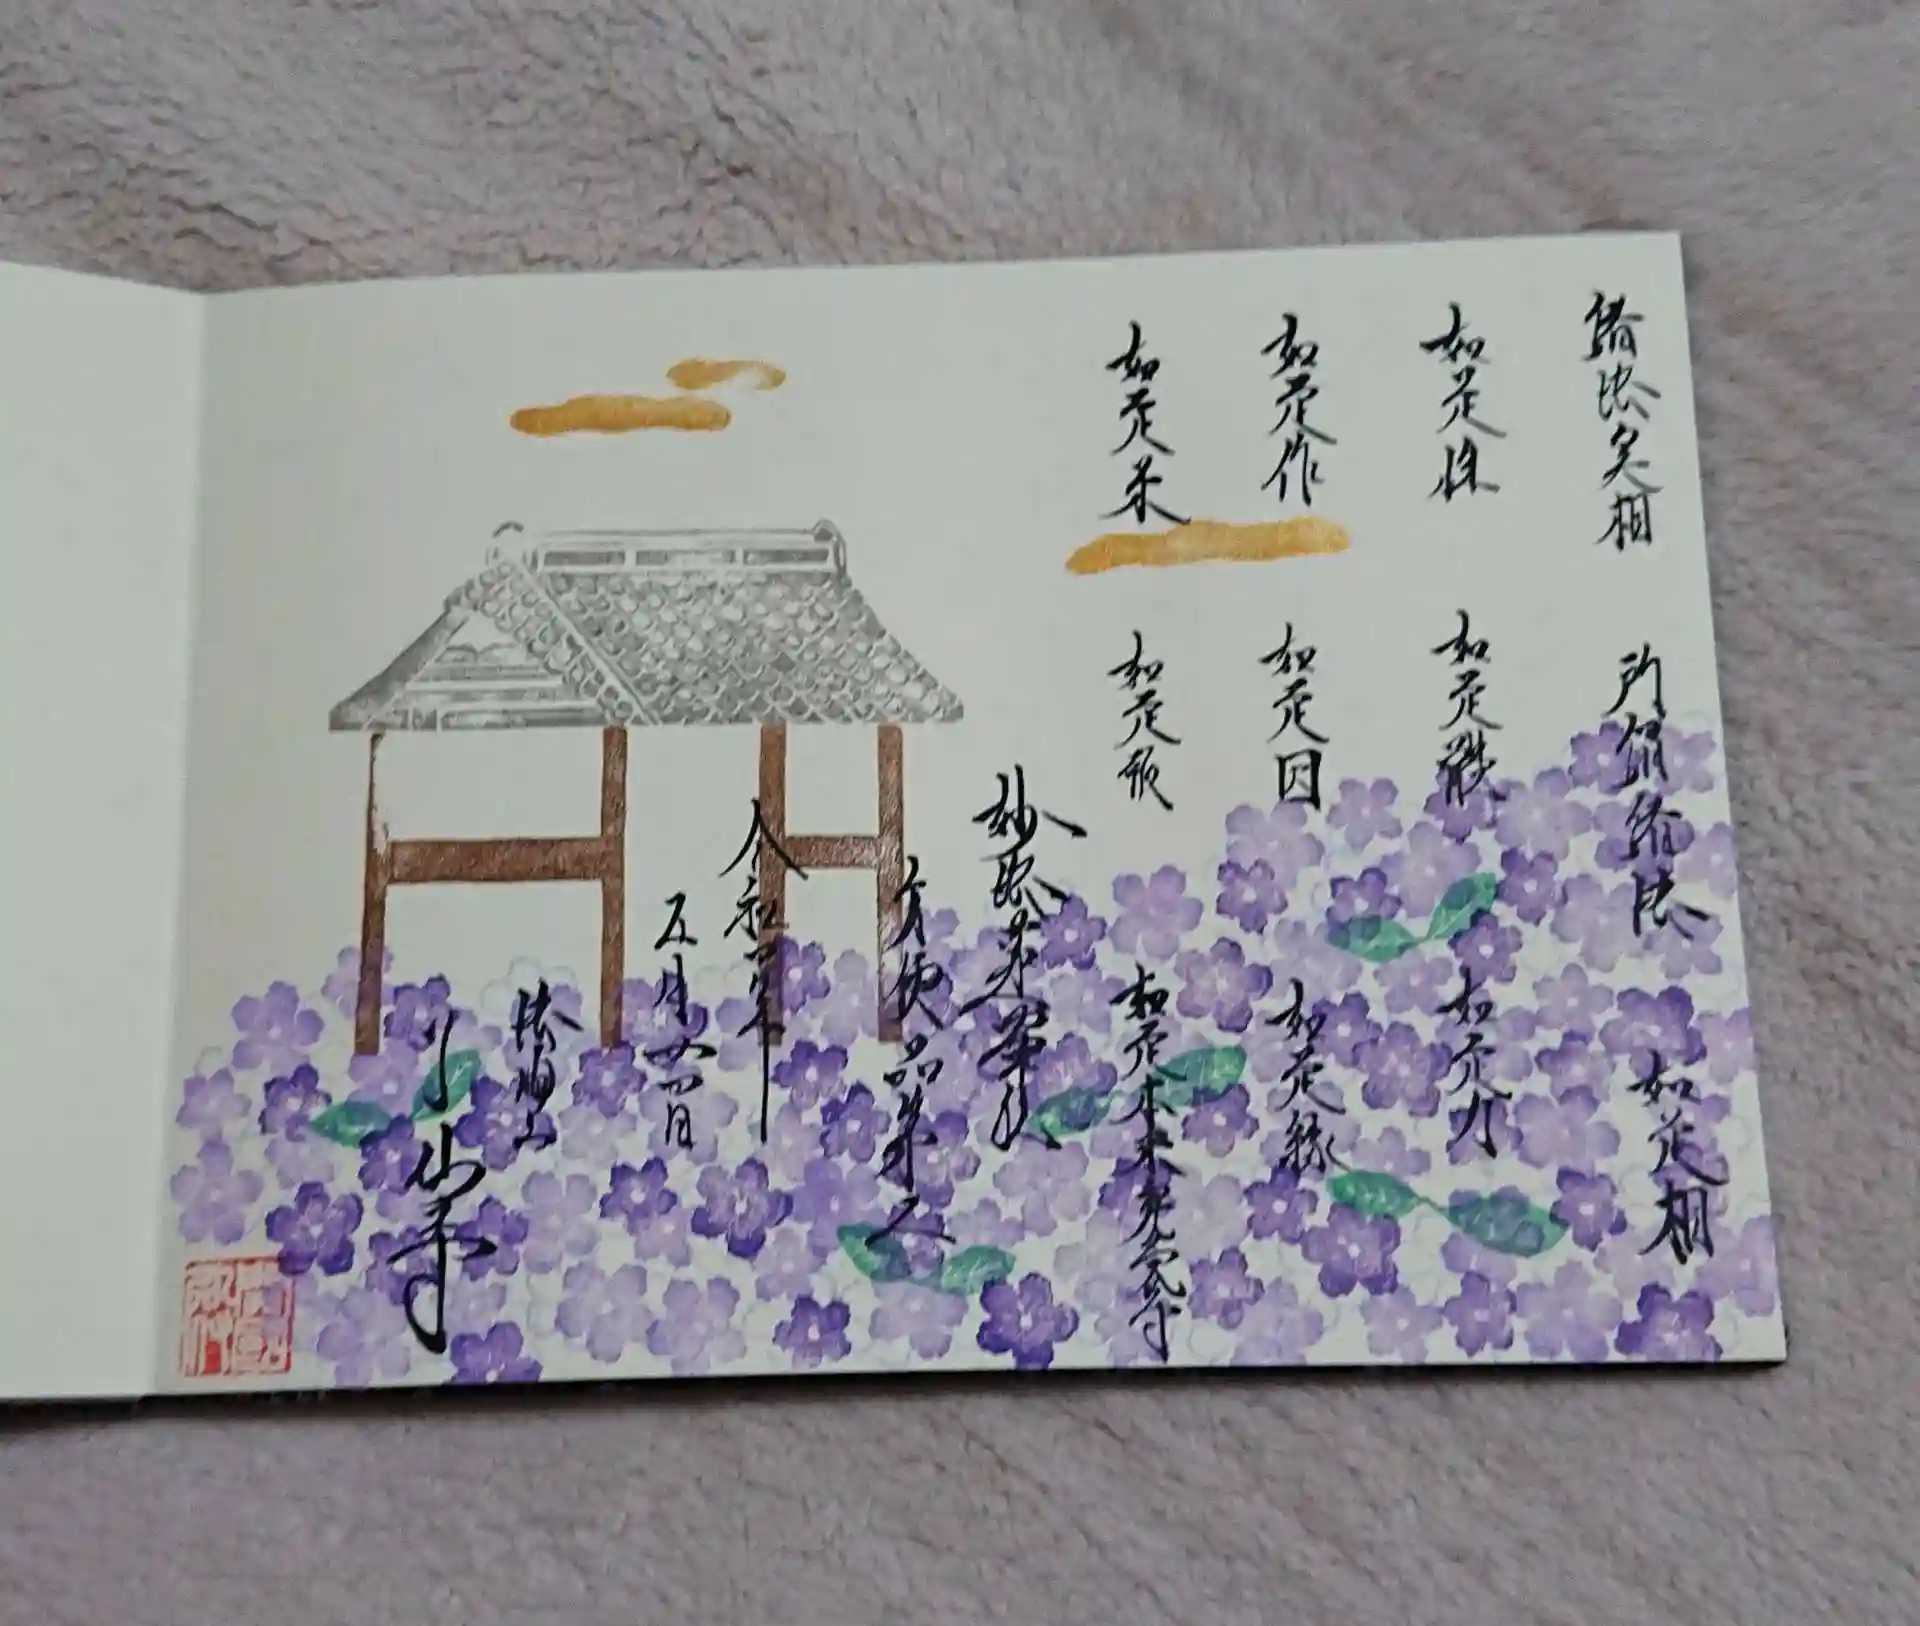 諸法実相 所謂諸法 如是相
如是性 如是體 如是力
如是作 如是因 如是縁
如是果 如是報 如是本末究竟等
妙法蓮華経
方便品第二
令和四年
五月廿四日